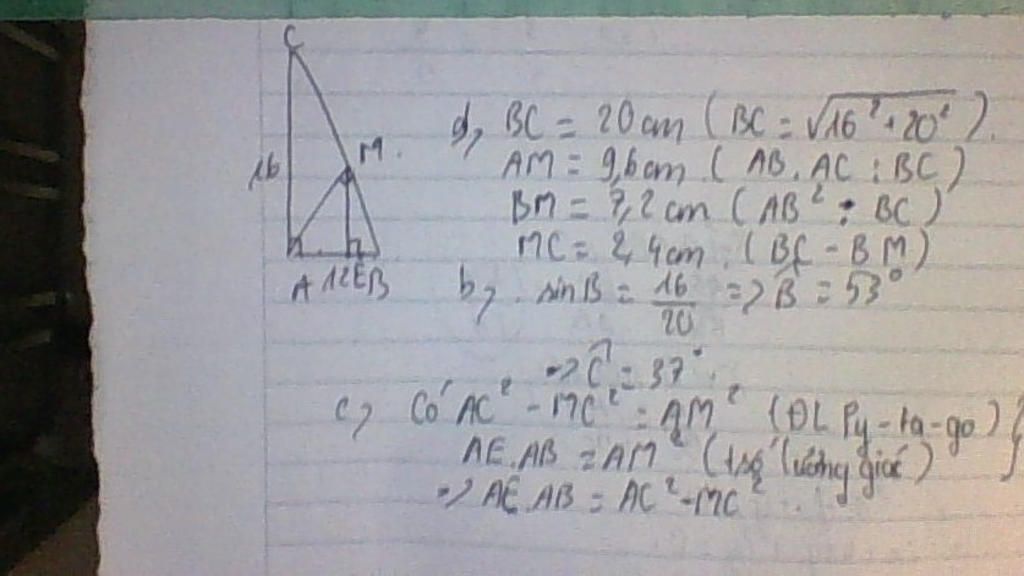 C
16
M.
A 12 E B
a, BC = 20 cm ( BC = √16² + 20² ).
AM = 9,6 cm. ( AB. AC : BC )
BM = 7,2 cm ( AB² : BC )
MC = 2,4 cm. ( BC - BM )
b, . sin B = 16/20 => B̂ = 53°
=> Ĉ = 37°.
c, Có AC² - MC² = AM² (ĐL Py-ta-go) }
AE.AB = AM² (tsố lượng giác)
=> AE.AB = AC² - MC² .